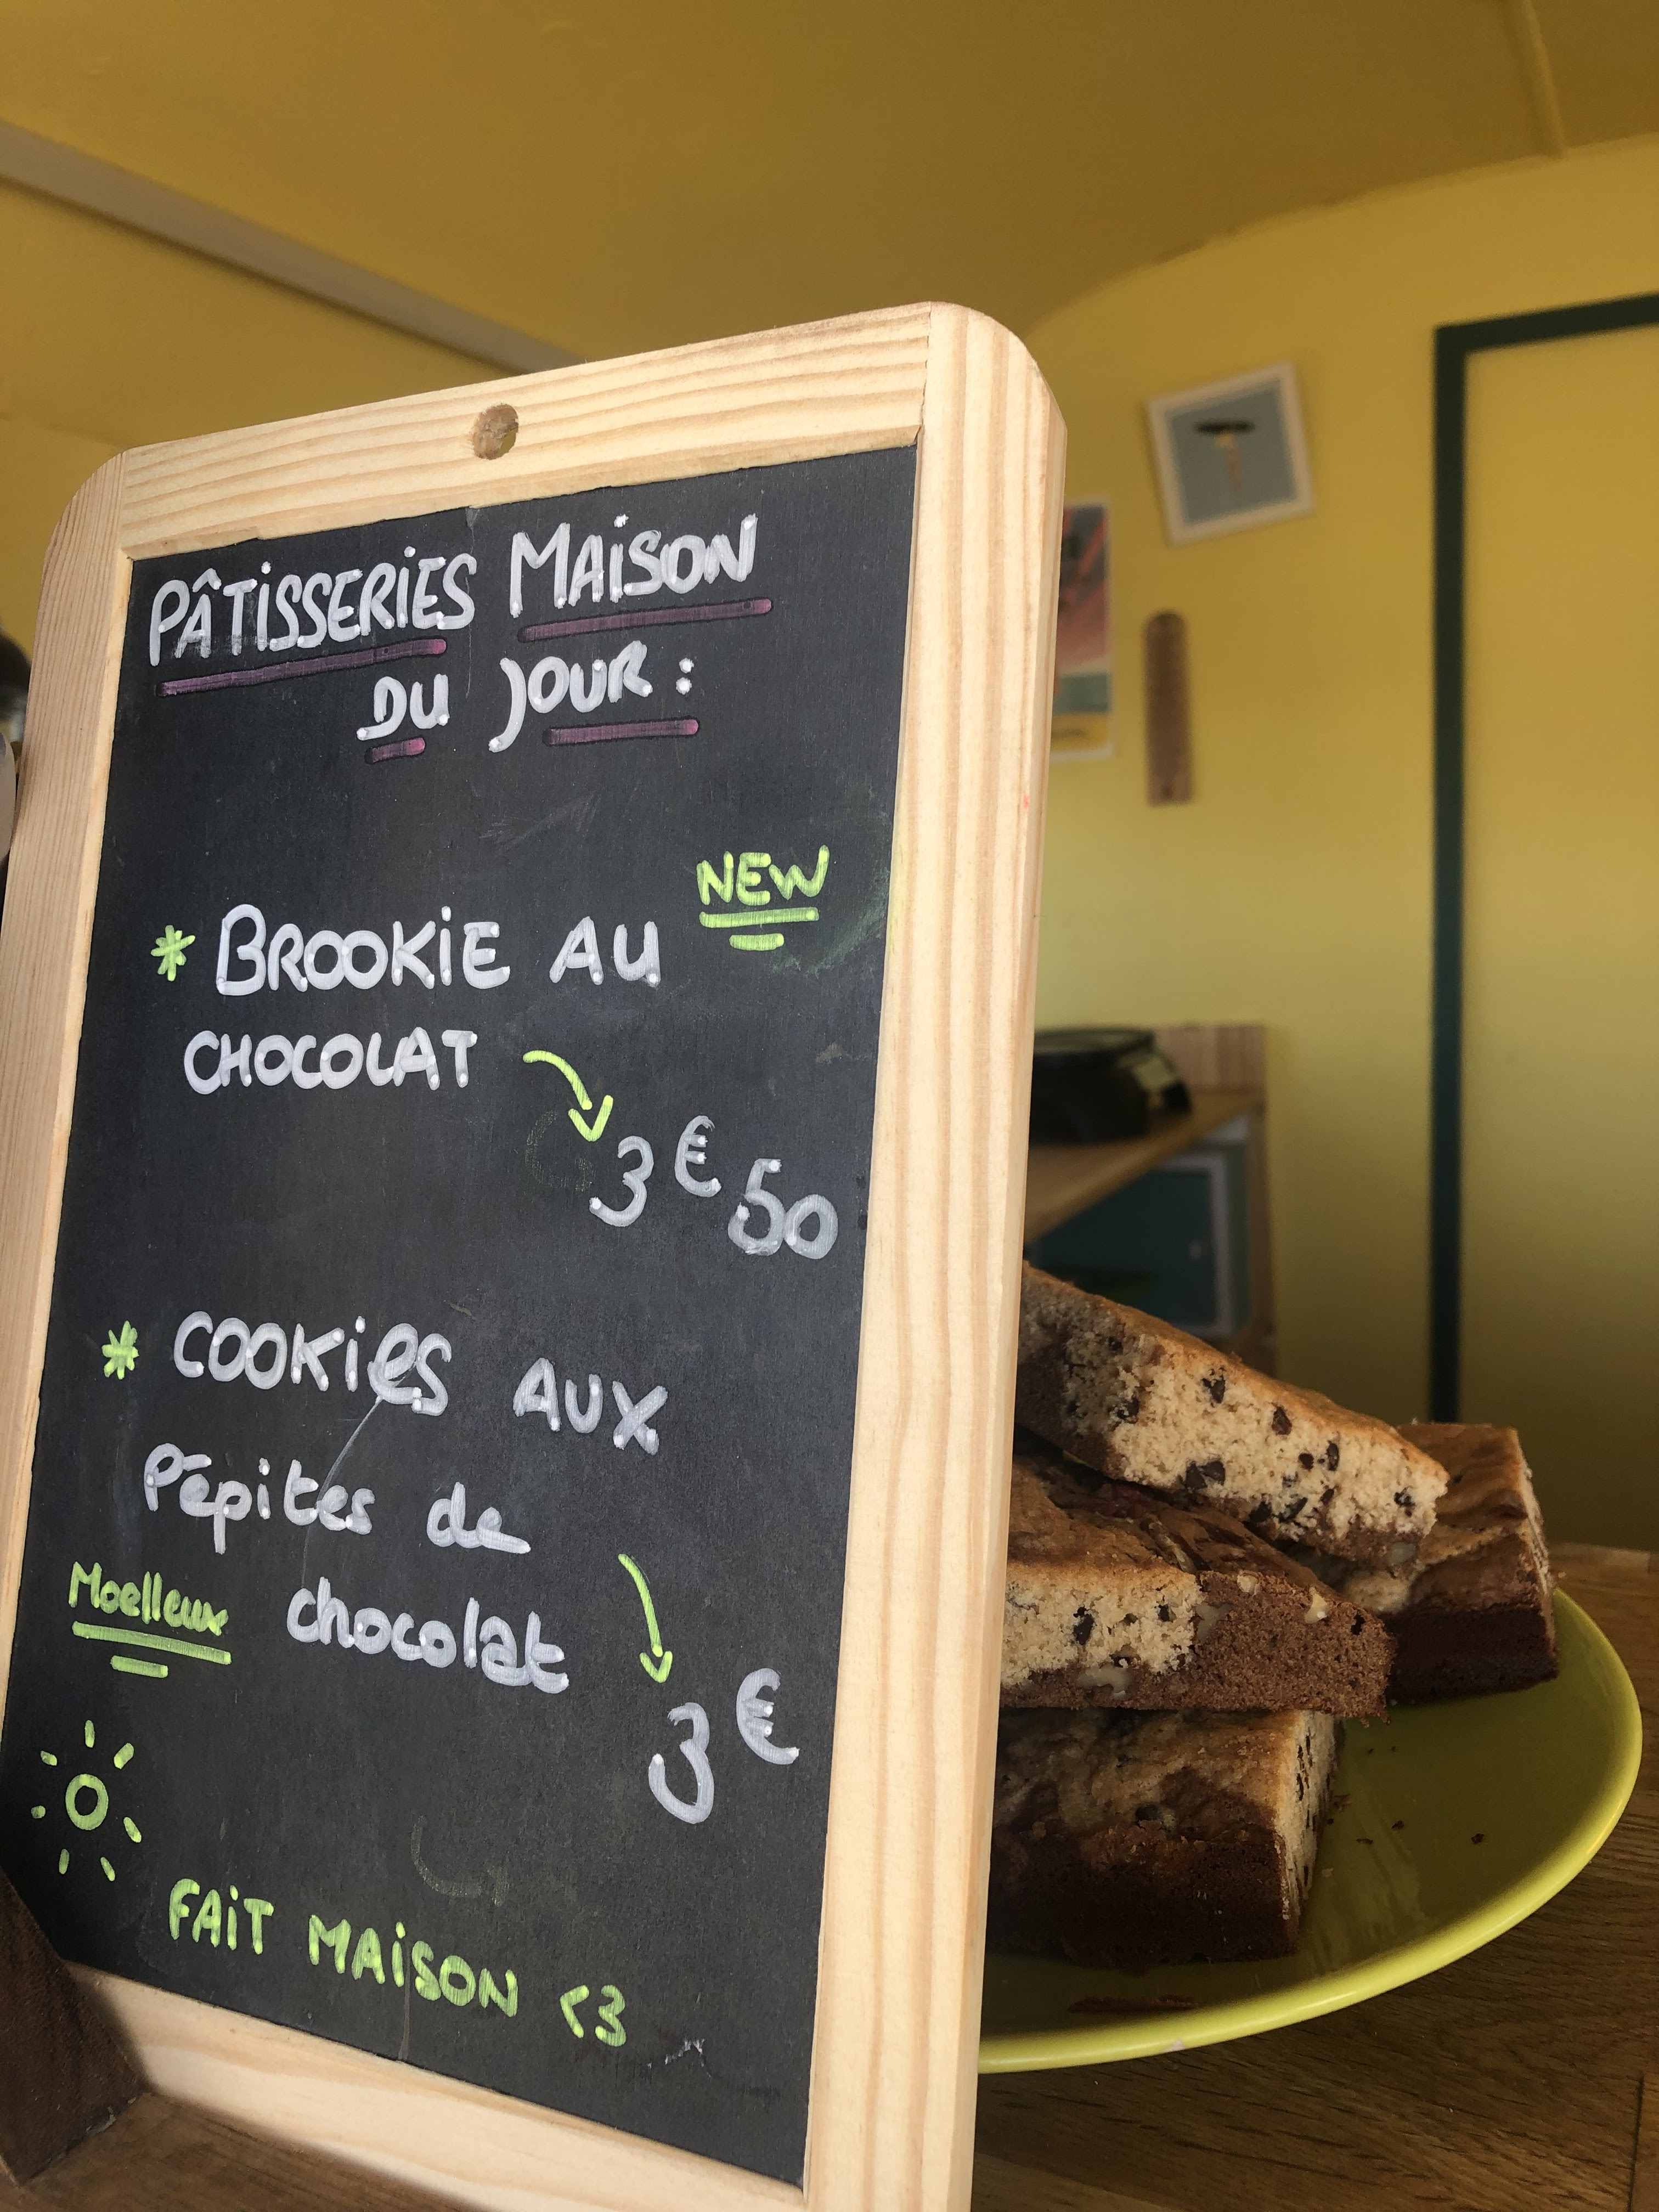 PÂTISSERIES MAISON
DU JOUR :
NEW
* BROOKIE AU
CHOCOLAT
3€50
* COOKIES AUX
Pépites de
Moelleux
chocolat
3€
FAIT MAISON <3